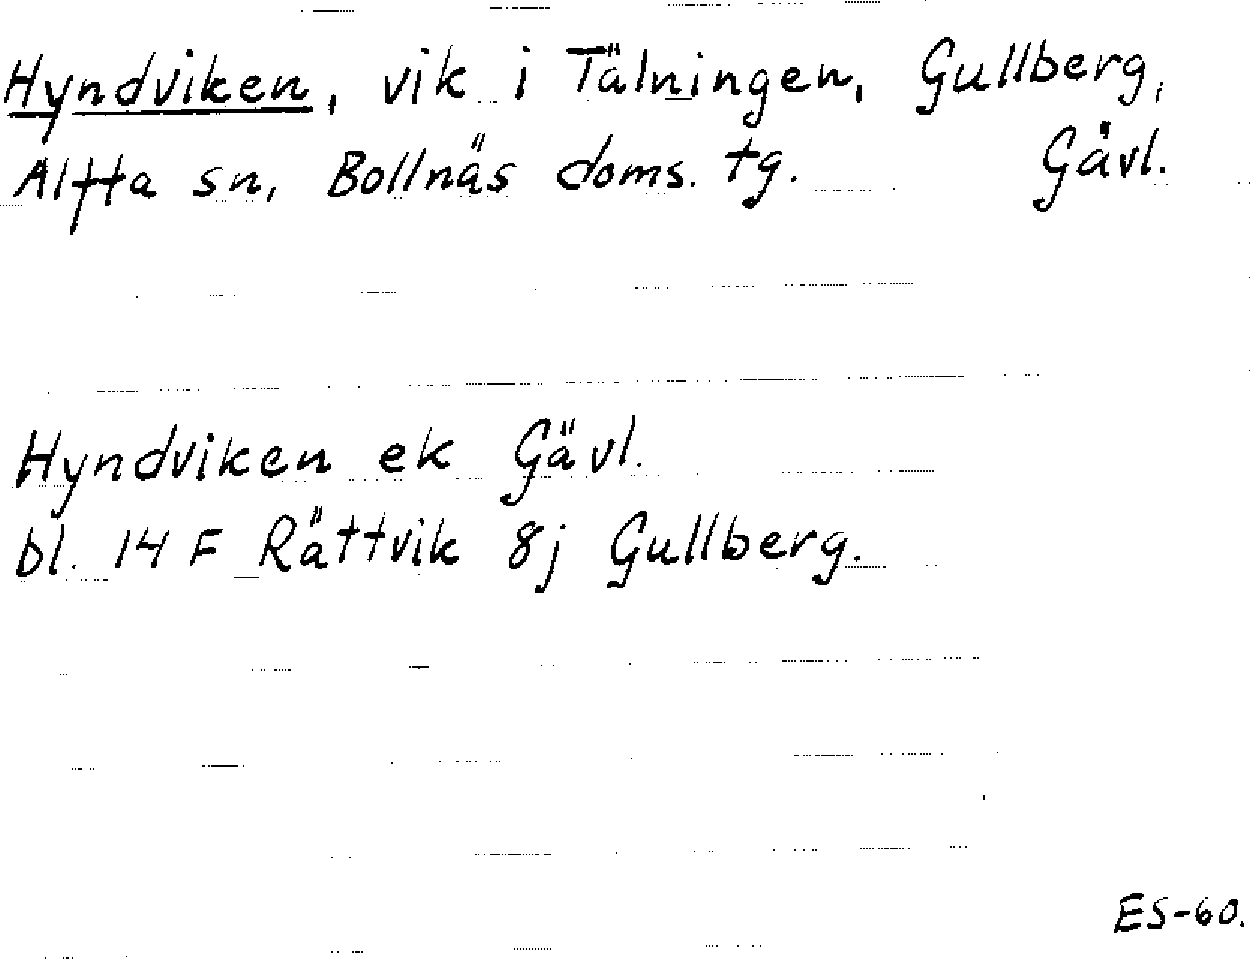 Hyndviken, vik i Tälningen, Gullberg,
Alfta sn, Bollnäs doms. tg. Gävl.
Hyndviken ek Gävl.
bl. 14 F Rättvik 8j Gullberg.
ES-60.